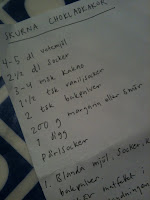 SKURNA CHOKLADKAKOR
4-5 dl vetemjöl
2 1/2 dl socker
3-4 msk kakao
1 1/2 tsk vaniljsocker
2 tsk bakpulver
200 g margarin eller smör
1 ägg
Pärlsocker
1. Blanda mjöl, socker,
bakpulver.